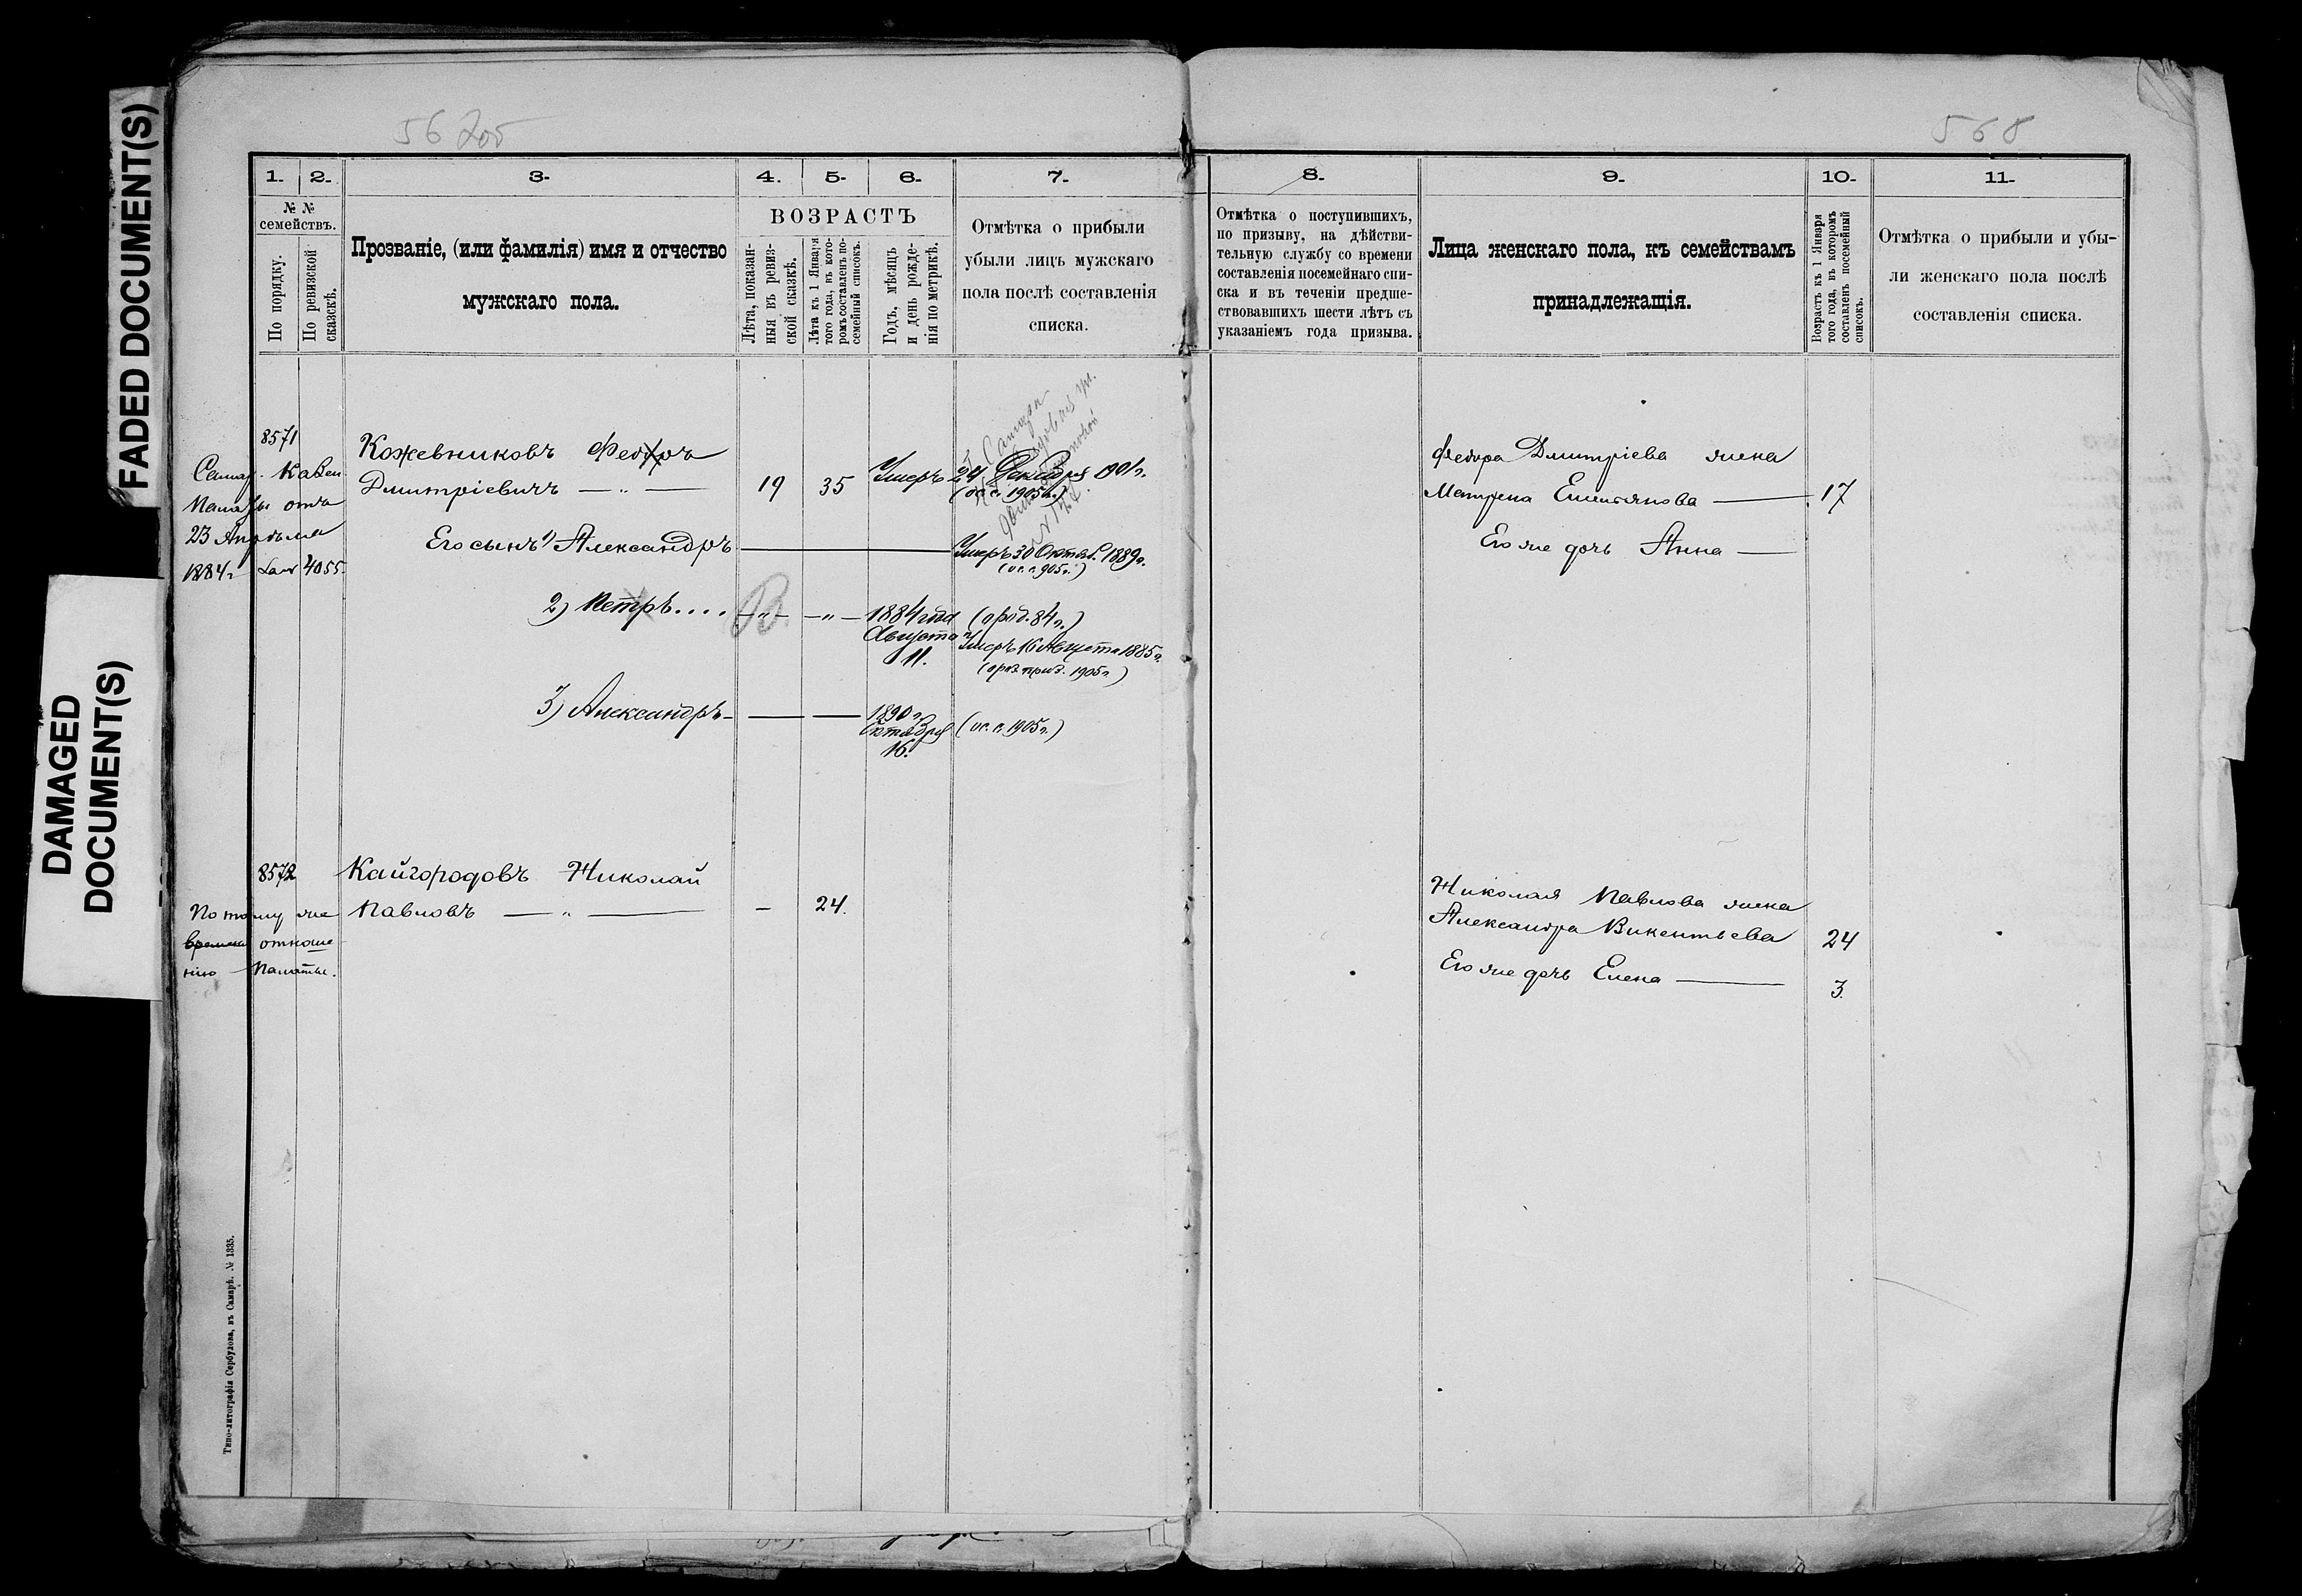 FADED DOCUMENT(S)
DAMAGED
DOCUMENT(S)
568
1.
2.
3.
4.
5.
6.
7.
№ №
семействъ.
По порядку.
По ревизской
сказскѣ.
Прозваніе, (или фамилія) имя и отчество
мужскаго пола.
ВОЗРАСТЪ
Лѣта, показан-
ныя въ ревиз-
ской сказкѣ.
Лѣта къ 1 Января
того года, въ кото-
ромъ составленъ по-
семейный списокъ.
Годъ, мѣсяцъ
и день рожде-
нія по метрикѣ.
Отмѣтка о прибыли
убыли лицъ мужскаго
пола послѣ составленія
списка.
8571
Самар. Казен.
Палаты отъ
23 Апрѣля
1884 г. за № 4055.
Кожевниковъ Федоръ
Дмитріевичъ — „ —
19
35
Умеръ 24 Декабря 1901 г.
(ос. с. 1905 г.)
Его сынъ 1) Александръ
Умеръ 30 Октяб. 1889 г.
(ос. с. 905 г.)
2) Петръ....
— „ —
— „ —
1884 года
Августа
11.
(прод. 84 г.)
Умеръ 16 Августа 1885 г.
3) Александръ
1890 г.
Октября
16.
(ос. с. 1905 г.)
8572
По тому же
времени отноше
нію Палаты.
Кайгородовъ Николай
Павловъ — „ —
—
24.
Типо-литографія Сербулова, въ Самарѣ. № 1335.
8.
9.
10.
11.
Отмѣтка о поступившихъ,
по призыву, на дѣйстви-
тельную службу со времени
составленія посемейнаго спи-
ска и въ теченіи предше-
ствовавшихъ шести лѣтъ съ
указаніемъ года призыва.
Лица женскаго пола, къ семействамъ
принадлежащія.
Возрастъ къ 1 Января
того года, въ которомъ
составленъ посемейный
списокъ.
Отмѣтка о прибыли и убы-
ли женскаго пола послѣ
составленія списка.
Федора Дмитріева жена
Матрена Емельянова
17
Его же дочь Анна
Николая Павлова жена
Александра Викентьева
24
Его же дочь Елена
3.